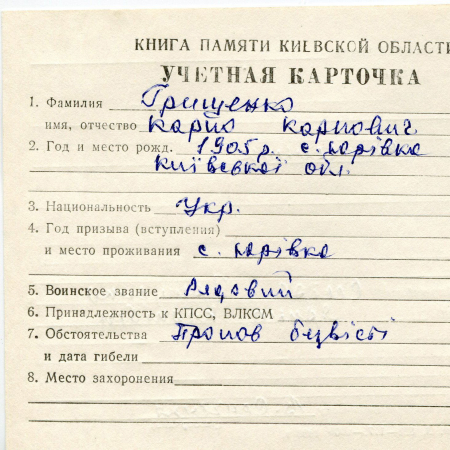 КНИГА ПАМЯТИ КИЕВСКОЙ ОБЛАСТИ
УЧЕТНАЯ КАРТОЧКА
1. Фамилия Грищенко
имя, отчество Карпо Карпович
2. Год и место рожд. 1905 р. с. Юрівка
Київської обл.
3. Национальность Укр.
4. Год призыва (вступления)
и место проживания с. Юрівка
5. Воинское звание Рядовий
6. Принадлежность к КПСС, ВЛКСМ
7. Обстоятельства Пропав безвісті
и дата гибели
8. Место захоронения